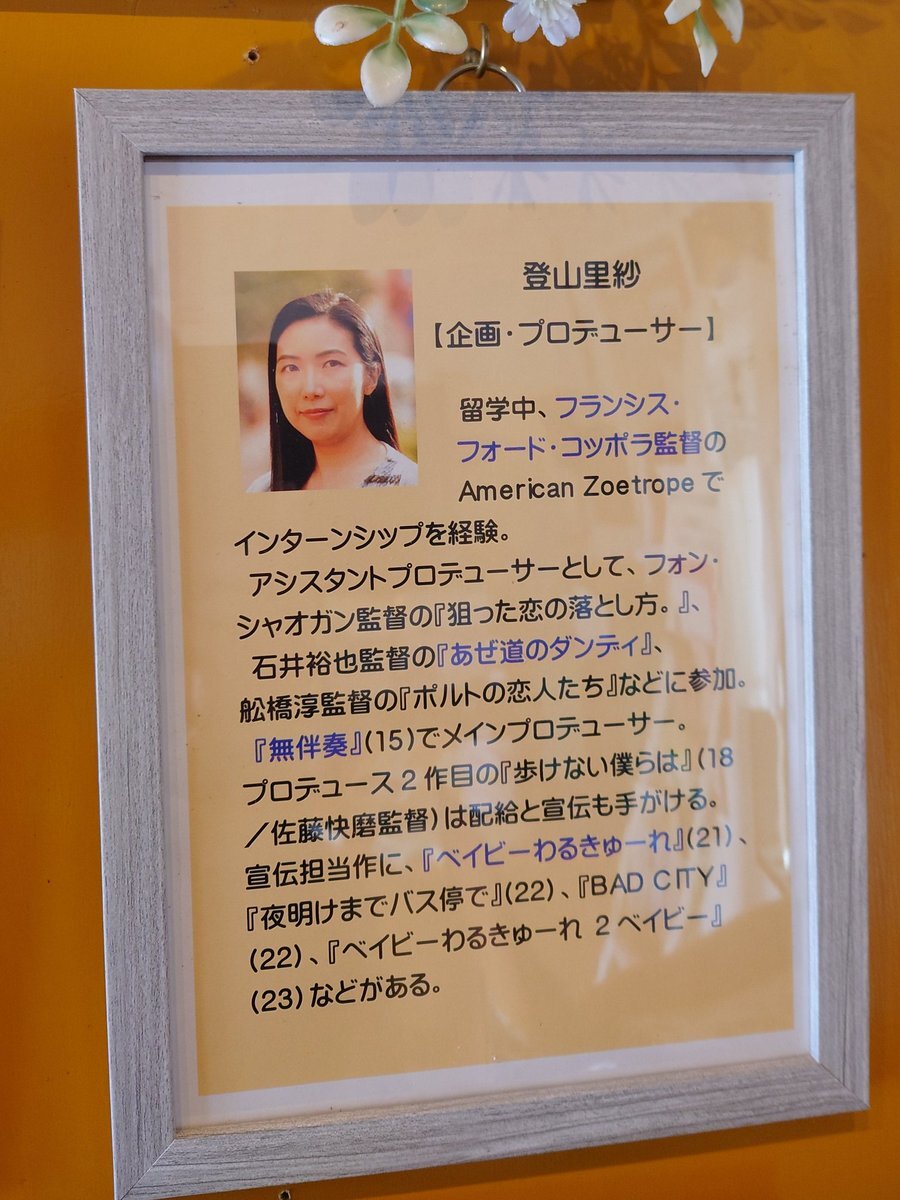 登山里紗
【企画・プロデューサー】
留学中、フランシス・
フォード・コッポラ監督の
American Zoetropeで
インターンシップを経験。
アシスタントプロデューサーとして、フォン・
シャオガン監督の『狙った恋の落とし方。』、
石井裕也監督の『あぜ道のダンディ』、
舩橋淳監督の『ポルトの恋人たち』などに参加。
『無伴奏』(15)でメインプロデューサー。
プロデュース2作目の『歩けない僕らは』(18
／佐藤快磨監督)は配給と宣伝も手がける。
宣伝担当作に、『ベイビーわるきゅーれ』(21)、
『夜明けまでバス停で』(22)、『BAD CITY』
(22)、『ベイビーわるきゅーれ 2ベイビー』
(23)などがある。